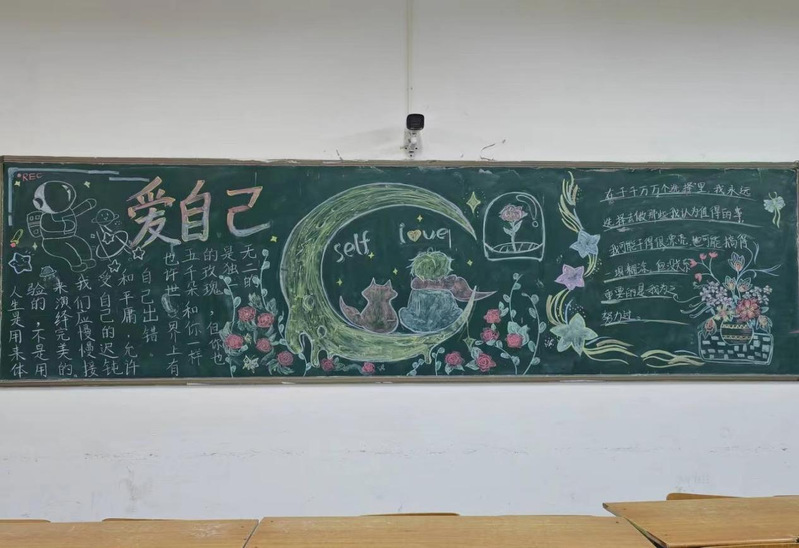 REC
爱自己
人生是用来体
验的,不是用
来演绎完美的。
我们应慢慢接
受自己的迟钝
和平庸,允许
自己出错
也许世界上有
五千朵和你一样
的玫瑰,但你也
是独
无二的
self love
在千千万万个选择里,我永远
选择去做那些我认为值得的事
我可能干得很漂亮,也可能搞得
一塌糊涂,但
重要的是我为之
努力过。